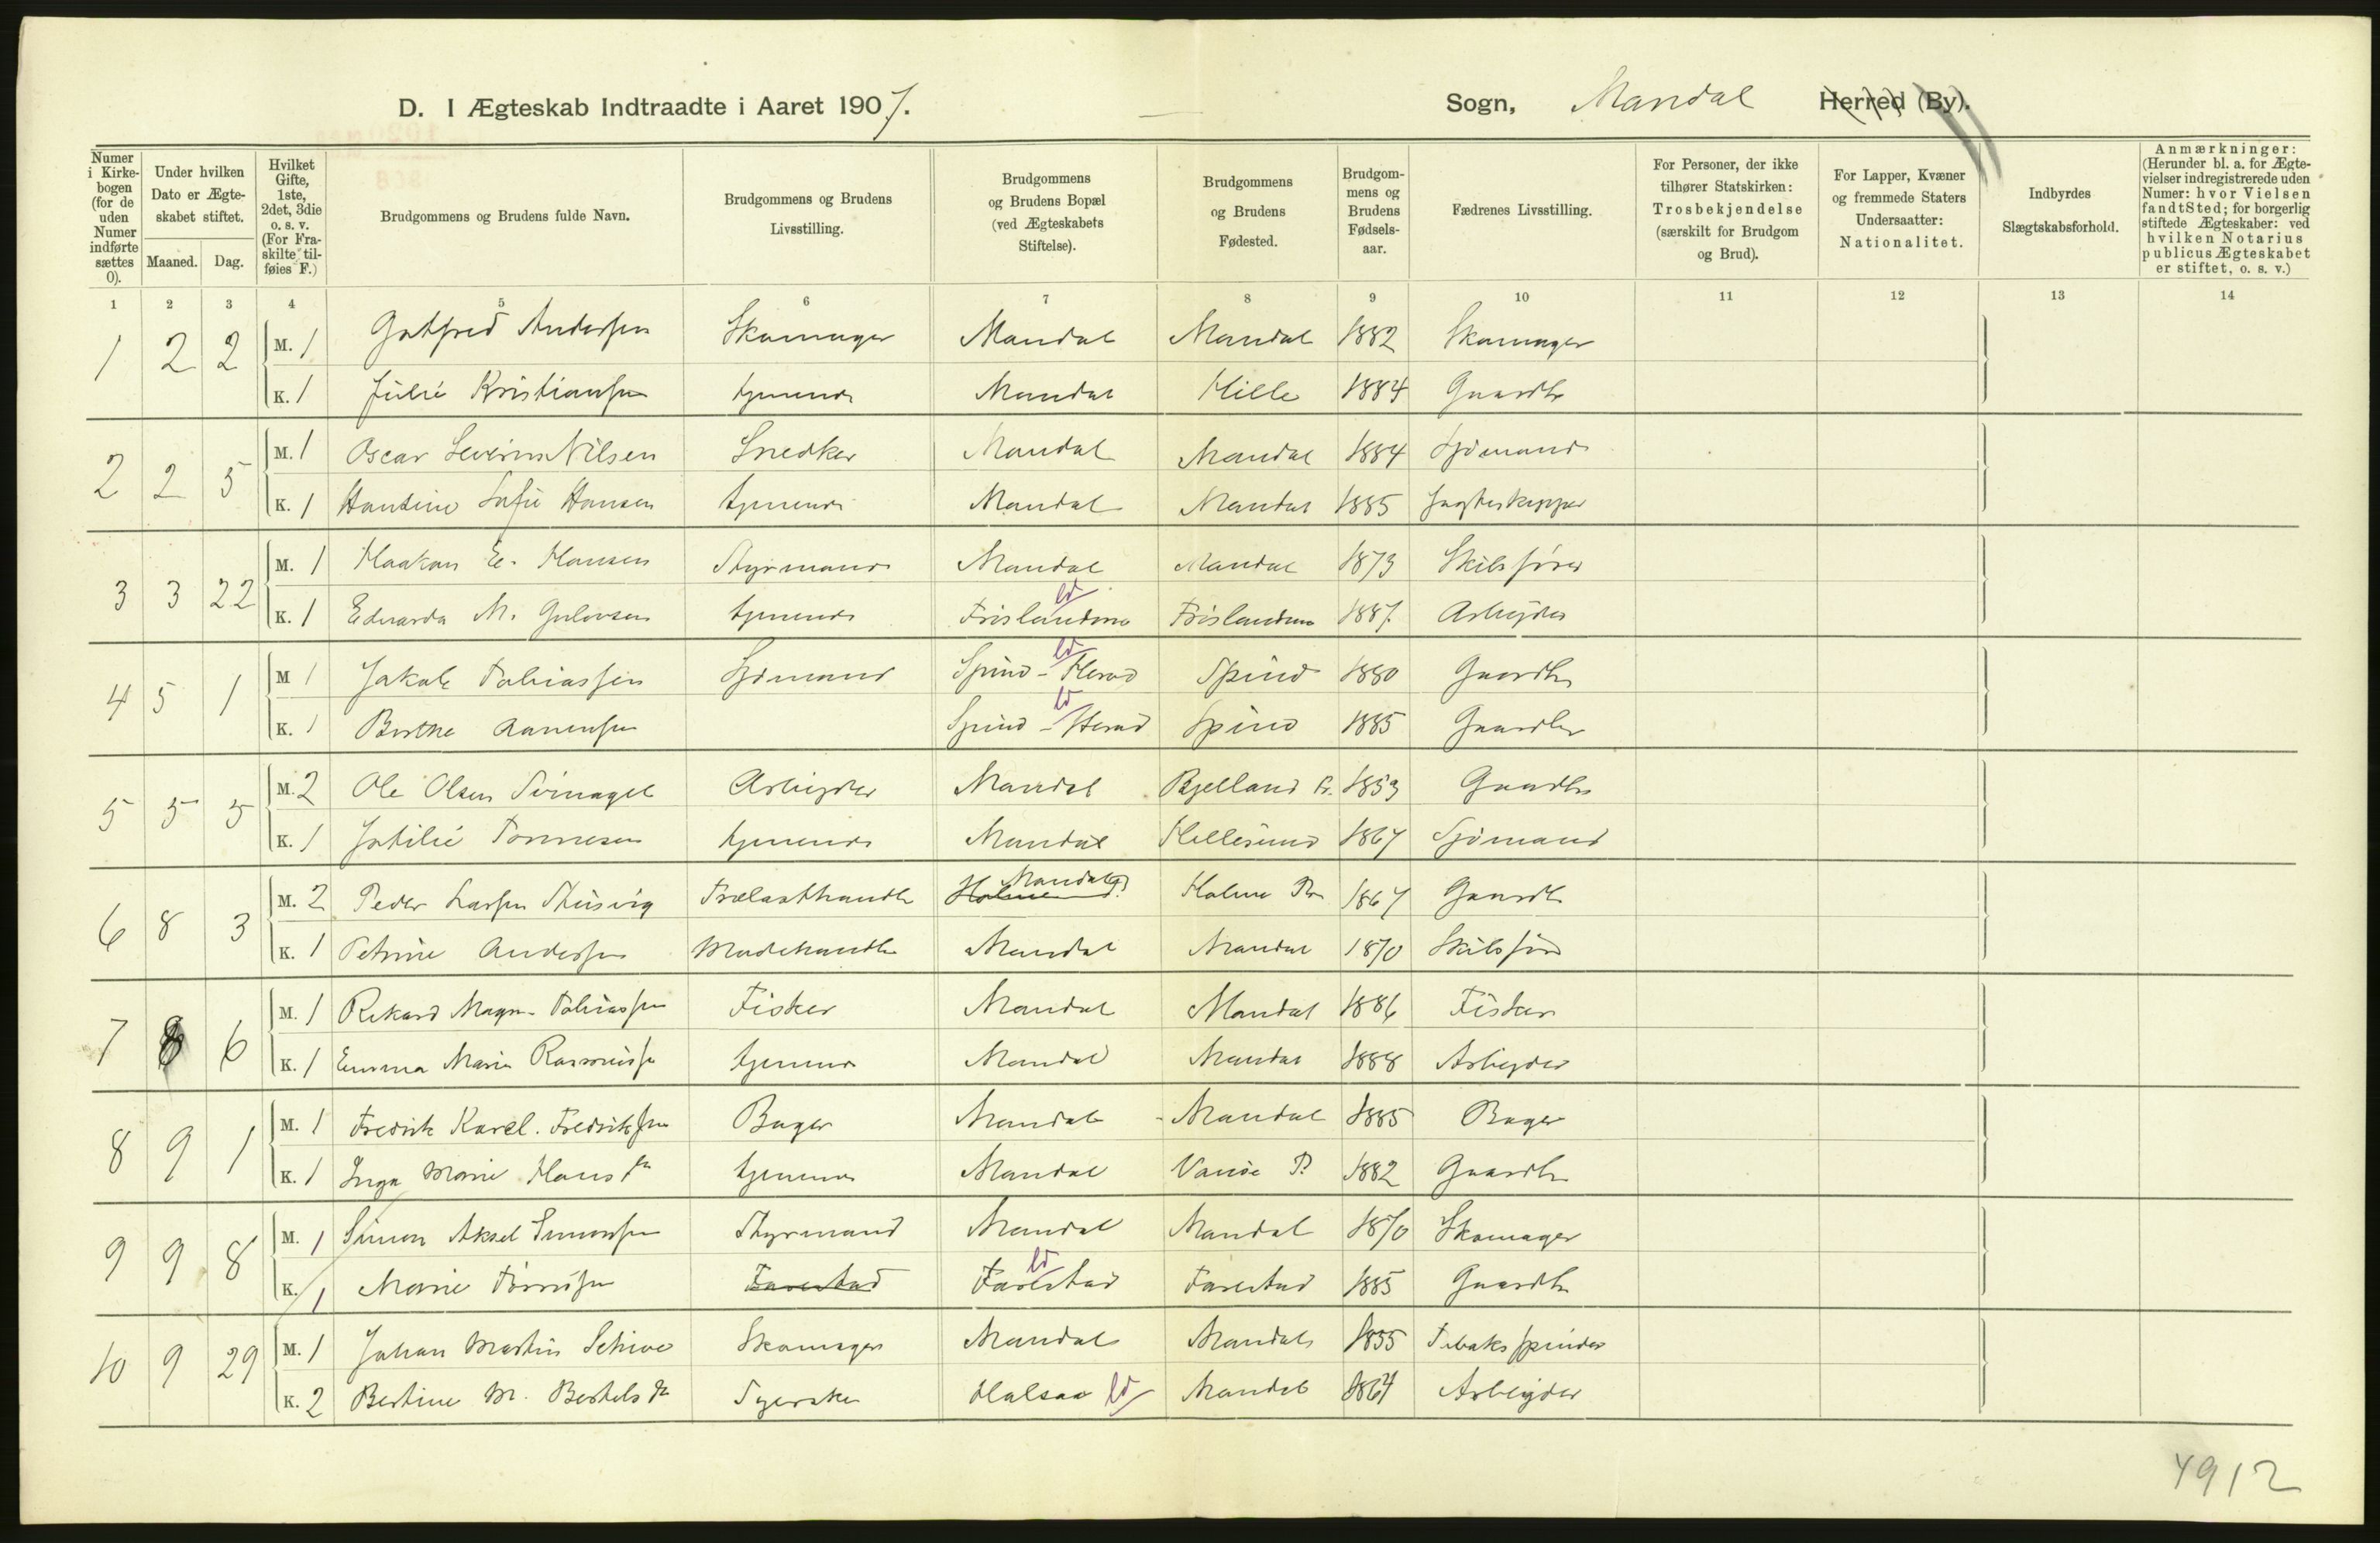 D. I Ægteskab Indtraadte i Aaret 1907. — Sogn, Mandal Herred (By).
Numer i Kirkebogen (for de uden Numer indførte sættes 0).
Under hvilken Dato er Ægteskabet stiftet.
Maaned. Dag.
Hvilket Gifte, 1ste, 2det, 3die o. s. v. (For Fraskilte tilføies F.)
Brudgommens og Brudens fulde Navn.
Brudgommens og Brudens Livsstilling.
Brudgommens og Brudens Bopæl (ved Ægteskabets Stiftelse).
Brudgommens og Brudens Fødested.
Brudgommens og Brudens Fødselsaar.
Fædrenes Livsstilling.
For Personer, der ikke tilhører Statskirken: Trosbekjendelse (særskilt for Brudgom og Brud).
For Lapper, Kvæner og fremmede Staters Undersaatter: Nationalitet.
Indbyrdes Slægtskabsforhold.
Anmærkninger: (Herunder bl. a. for Ægtevielser indregistrerede uden Numer: hvor Vielsen fandt Sted; for borgerlig stiftede Ægteskaber: ved hvilken Notarius publicus Ægteskabet er stiftet, o. s. v.)
1 2 3 4 5 6 7 8 9 10 11 12 13 14
1 2 2 M. 1 Gotfred Anderssen Skomager Mandal Mandal 1882 Skomager
K. 1 Julie Kristianssen tjenende Mandal Hille 1884 Gaardbr
2 2 5 M. 1 Oscar Severin Nilsen Snedker Mandal Mandal 1884 Sjømand
K. 1 Hansine Sofie Hansen tjenende Mandal Mandal 1885 Jagteskipper
3 3 22 M. 1 Haakon E. Hansen Styrmand Mandal Mandal 1873 Skibsfører
K. 1 Edvarda M. Gulovsen tjenende Frislandene ld Frislandene 1887. Arbeyder
4 5 1 M 1 Jakob Tobiassen Sjømand Spind - Herad ld Spind 1880 Gaardbr
K. 1 Berthe Aanensen Spind - Herad ld Spind 1885 Gaardbr
5 5 5 M. 2 Ole Olsen Arbeyder Mandal Bjelland 1853 Gaardbr
K. 1 Tønnesen tjenende Mandal Hellesund 1867 Sjømand
6 8 3 M. 2 Peder Larsen Trælasthandler Holme Mandal Holme 1867 Gaardbr
K. 1 Petrine Anderssen Modehandler Mandal Mandal 1870 Skibsfører
7 8 6 M. 1 Rikard Magn. Tobiassen Fisker Mandal Mandal 1886 Fisker
K. 1 Emma Marie Rasmussen tjenende Mandal Mandal 1888 Arbeyder
8 9 1 M. 1 Fredrik Karel. Fredrikssen Bager Mandal Mandal 1885 Bager
K. 1 Inga Marie Hans dr tjenende Mandal Vanse P. 1882 Gaardbr
9 9 8 M. 1 Simon Aksel Simonssen Styrmand Mandal Mandal 1870 Skomager
K. 1 Marie Tønnessen Farestad Farestad ld Farestad 1885 Gaardbr
10 9 29 M. 1 Johan Martin Schive Skomager Mandal Mandal 1855 Tobakspinder
K. 2 Bertine M. Bertels dr Syerske Halsaa ld Mandal 1864 Arbeyder
4912